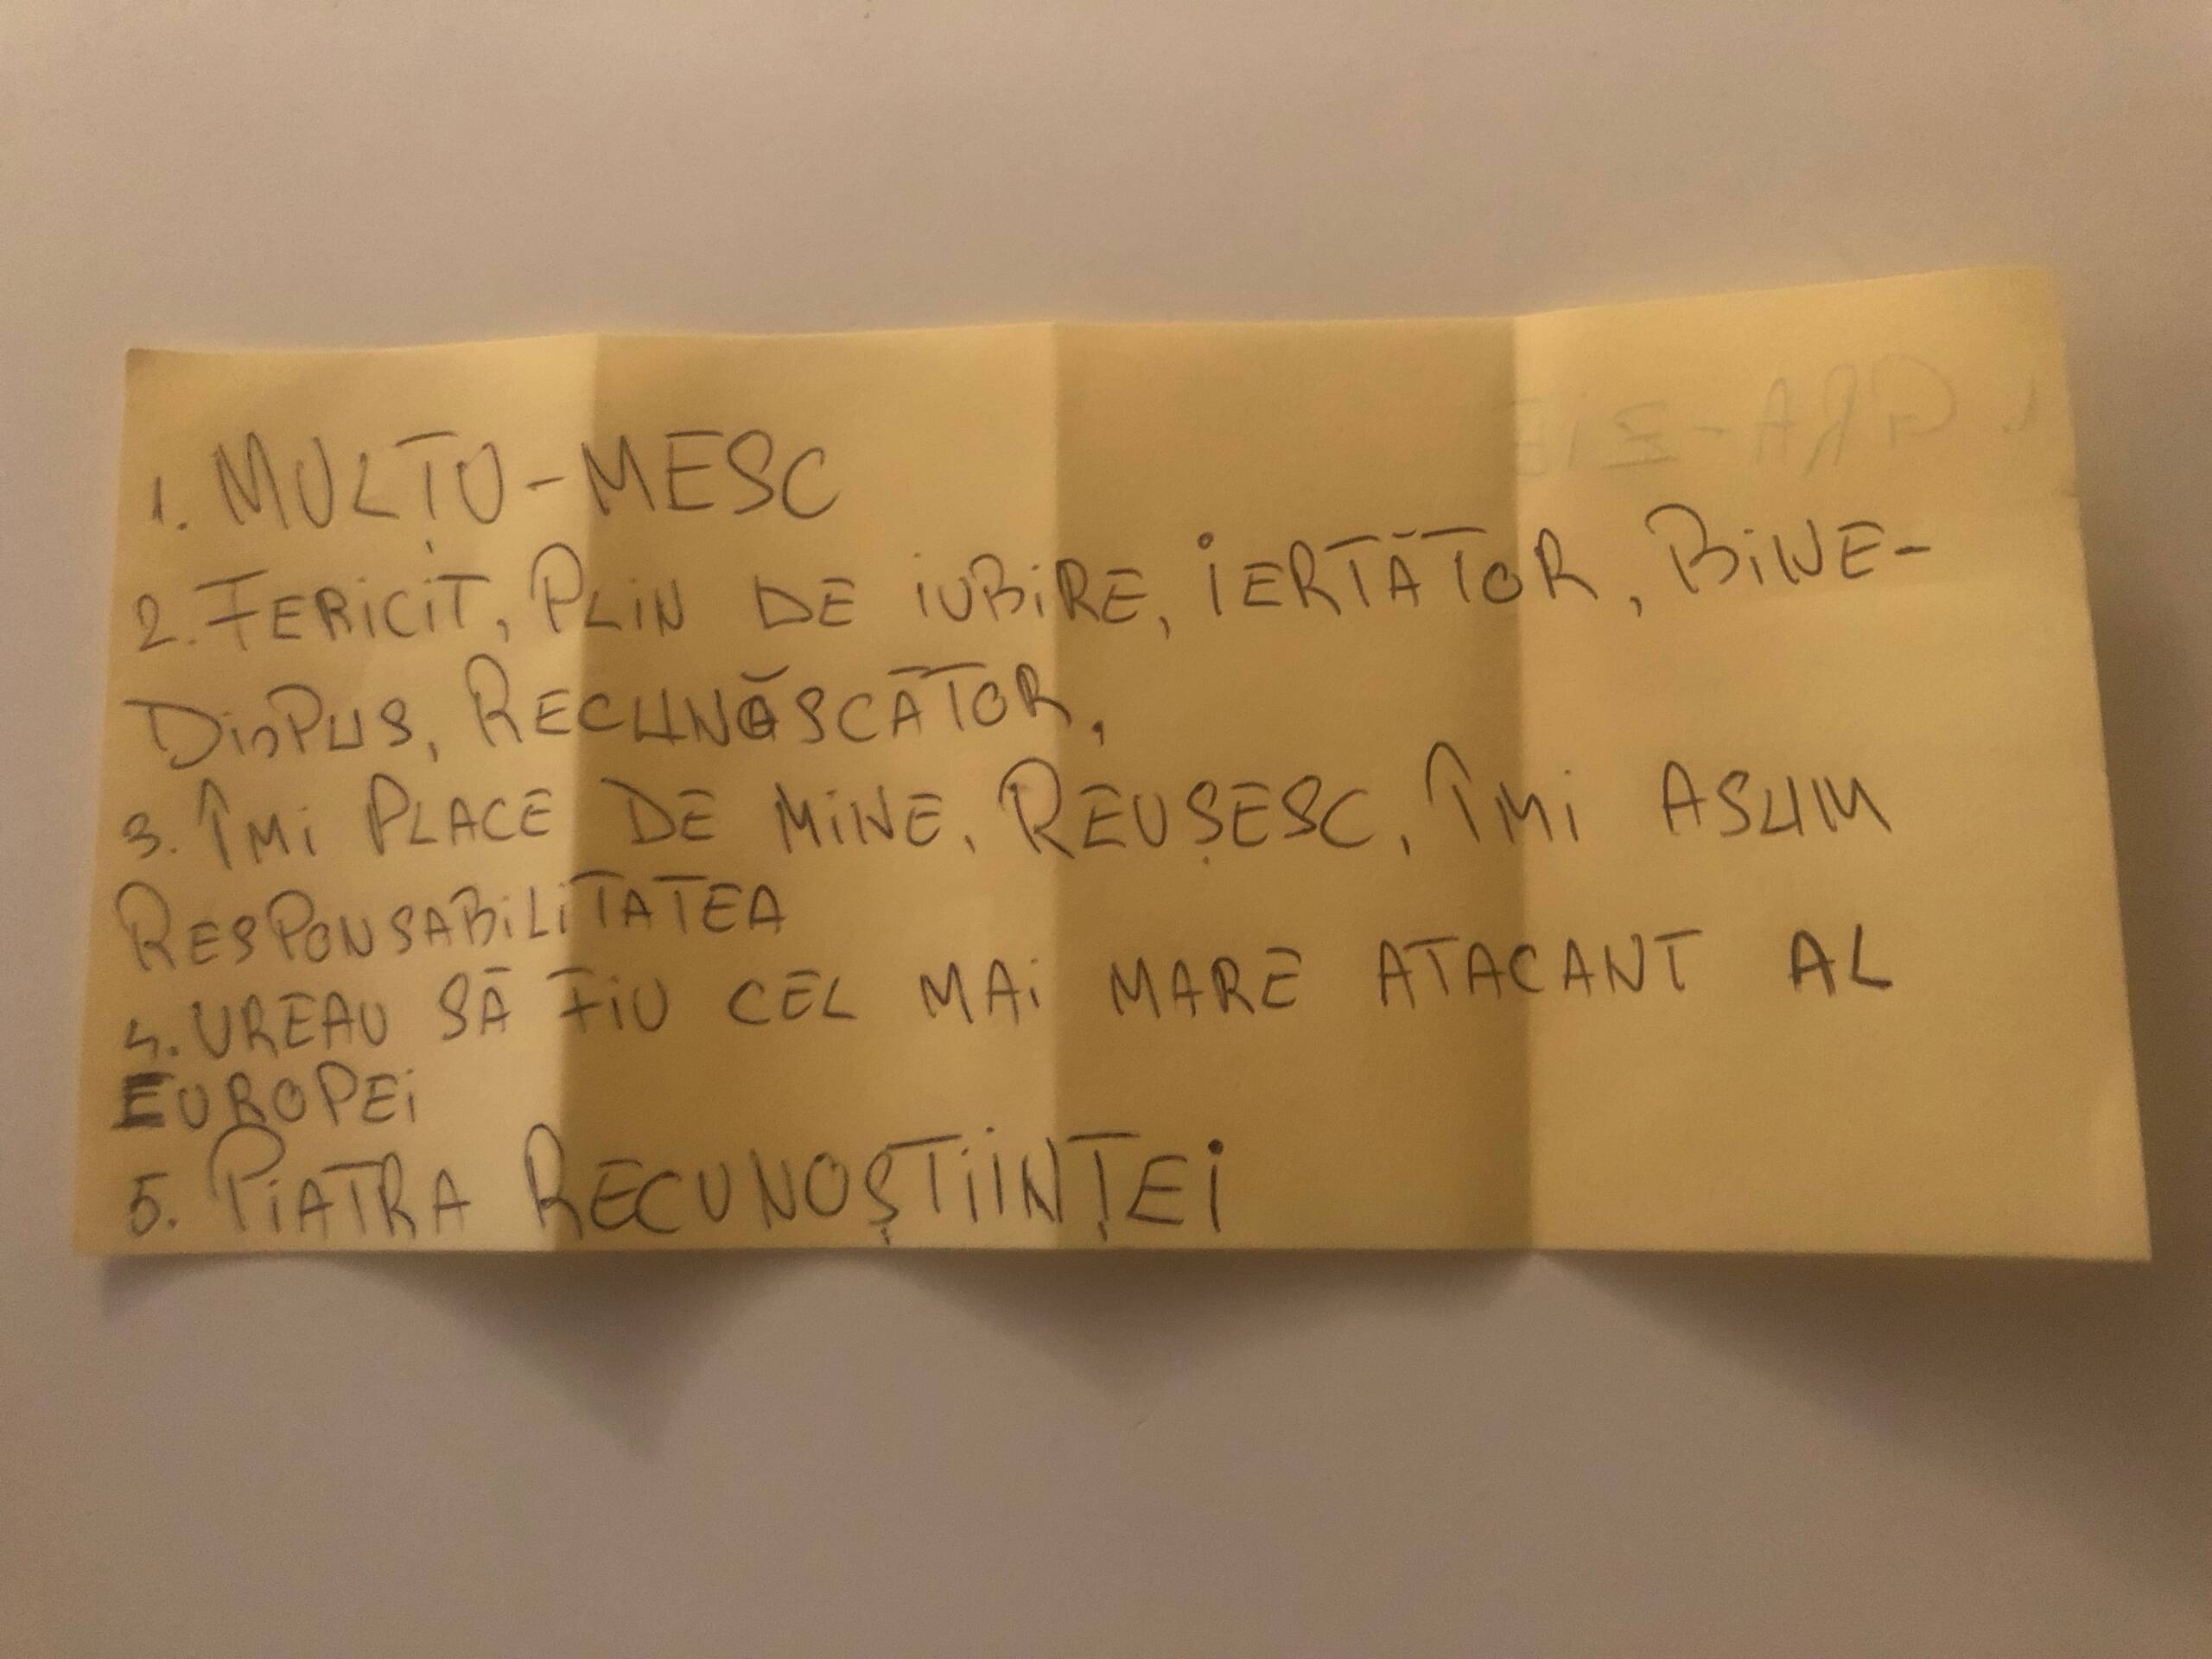 1. MULȚU-MESC
2. FERICIT, PLIN DE IUBIRE, IERTĂTOR, BINE-
DISPUS, RECUNĂSCĂTOR,
3. ÎMI PLACE DE MINE, REUȘESC, ÎMI ASUM
RESPONSABILITATEA
4. VREAU SĂ FIU CEL MAI MARE ATACANT AL
EUROPEI
5. PIATRA RECUNOȘTIINȚEI